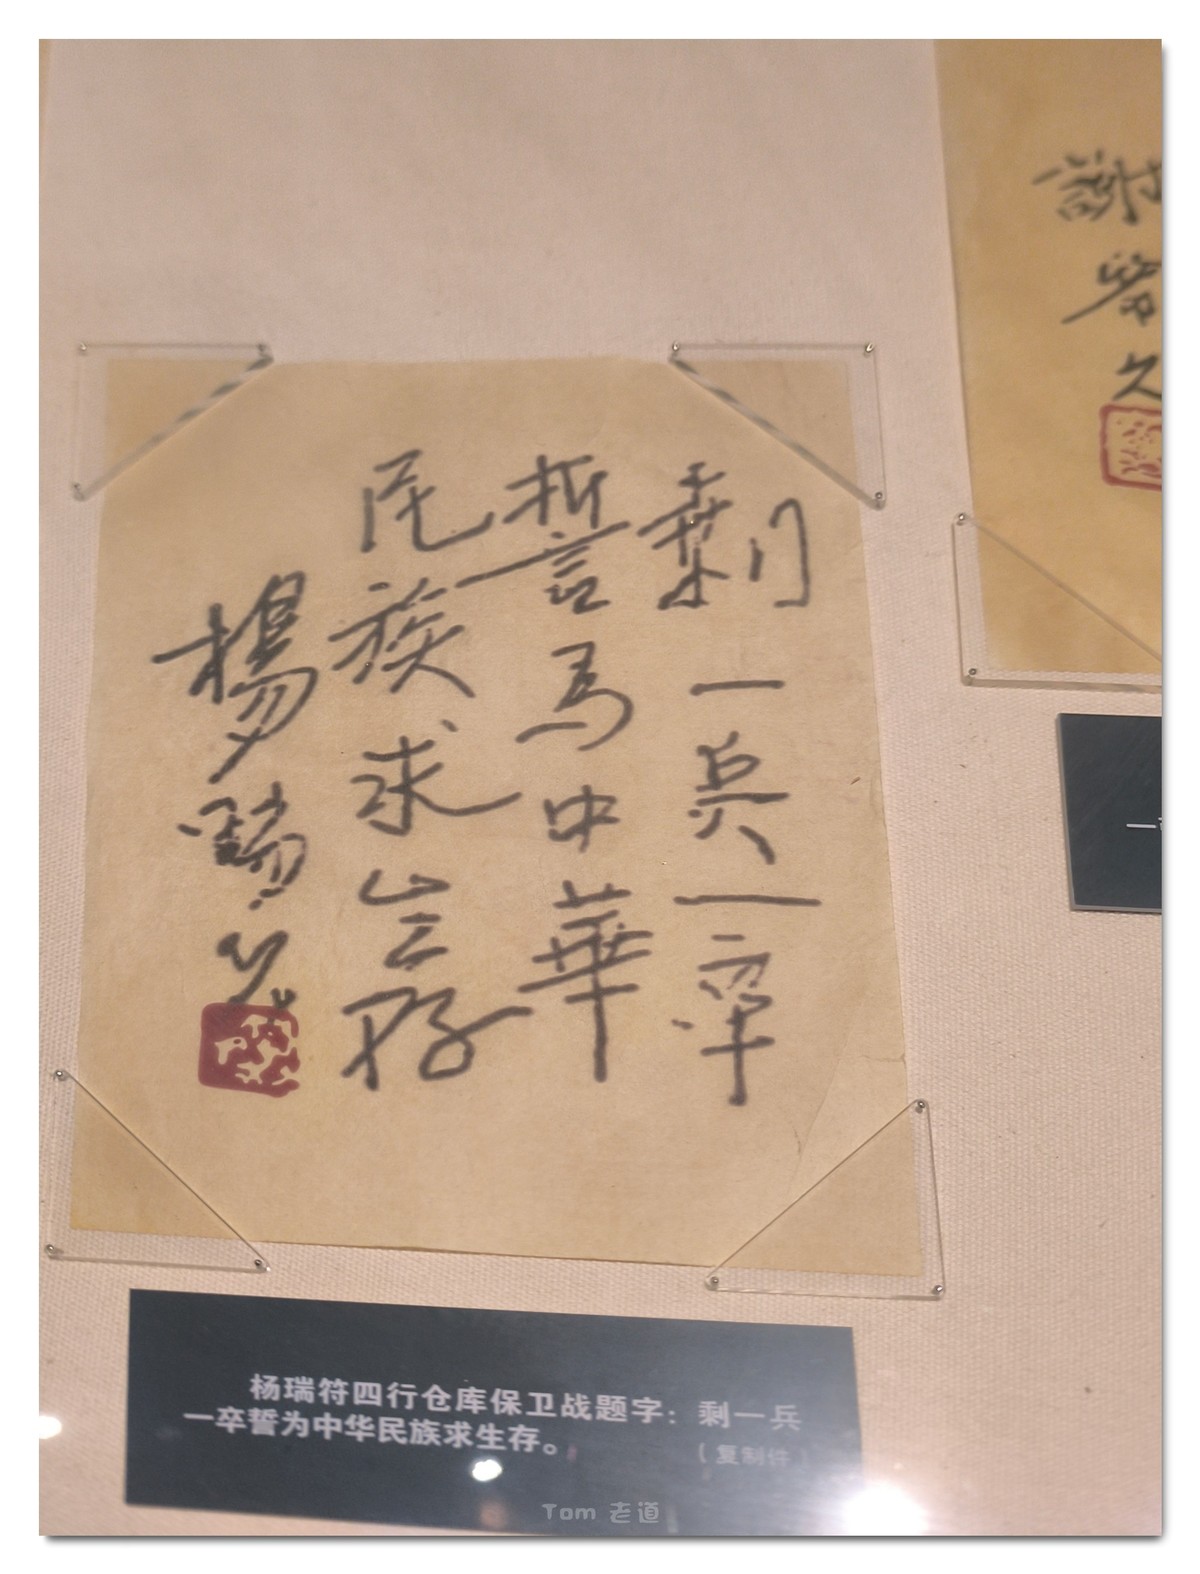 剩一兵一卒
誓為中華
民族求生存
楊瑞符
謝晉
杨瑞符四行仓库保卫战题字：剩一兵
一卒誓为中华民族求生存。
（复制件）
Tom 老道